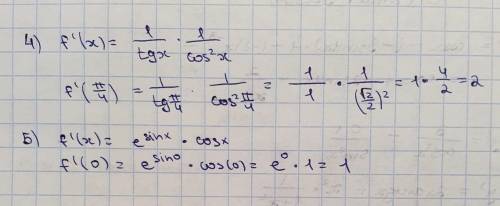 4) f'(x) = 1/tgx · 1/cos²x
f'(π/4) = 1/tg π/4 · 1/cos² π/4 = 1/1 · 1/(√2/2)² = 1 · 4/2 = 2
5) f'(x) = e^sinx · cosx
f'(0) = e^sin0 · cos(0) = e⁰ · 1 = 1